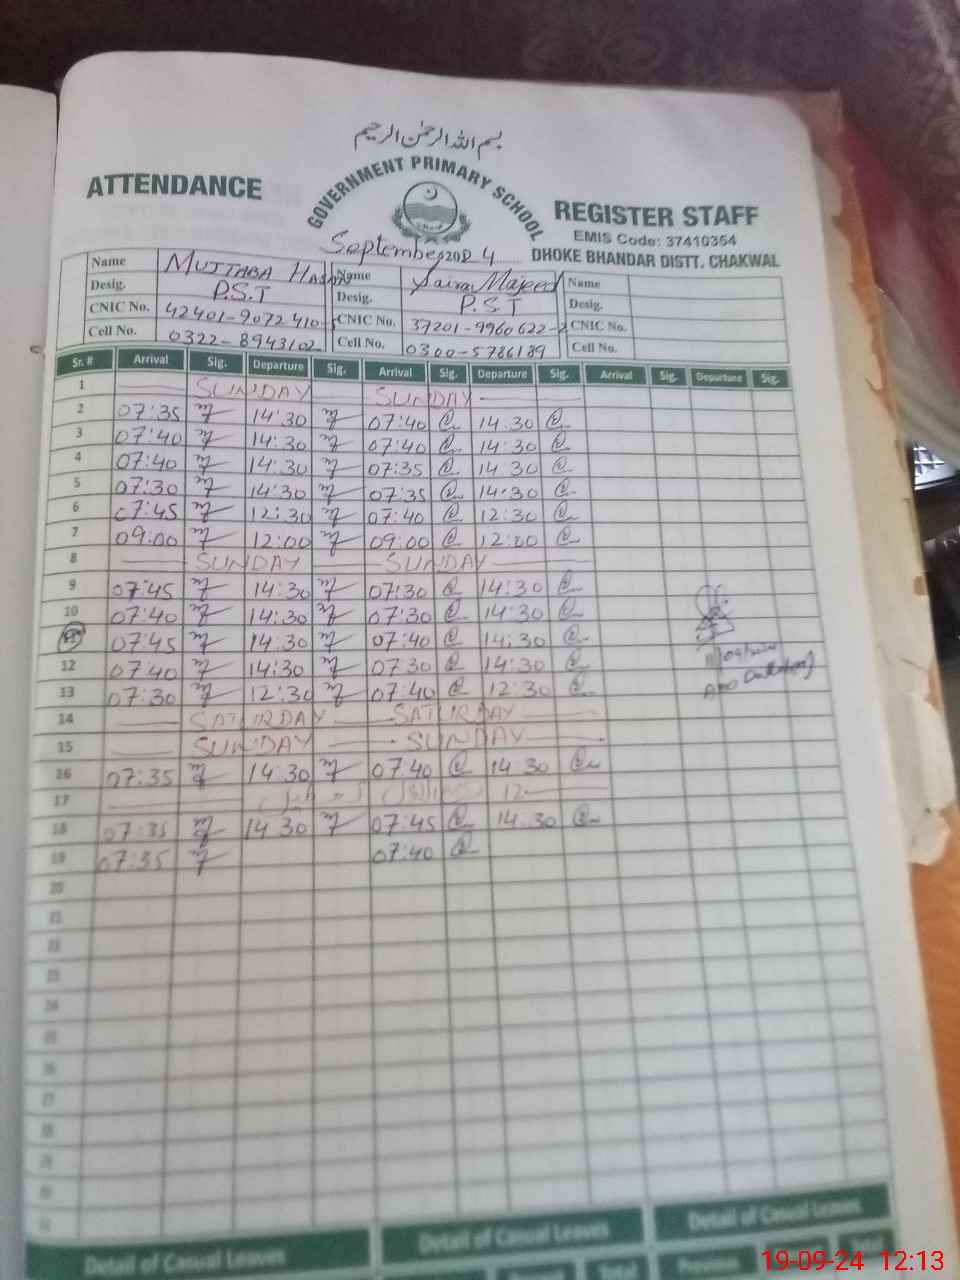 بسم الله الرحمن الرحيم
GOVERNMENT PRIMARY SCHOOL
ATTENDANCE REGISTER STAFF
EMIS Code: 37410354
September 2024 DHOKE BHANDAR DISTT. CHAKWAL
Name MUJTABA HASAN Name Saira Majeed Name
Desig. P.S.T Desig. P.S.T Desig.
CNIC No. 42401-9072410- CNIC No. 37201-9960622-2 CNIC No.
Cell No. 0322-8943102 Cell No. 0300-5786189 Cell No.
Sr. # Arrival Sig. Departure Sig. Arrival Sig. Departure Sig. Arrival Sig. Departure Sig.
1 SUNDAY SUNDAY
2 07:35 14:30 07:40 14:30
3 07:40 14:30 07:40 14:30
4 07:40 14:30 07:35 14:30
5 07:30 14:30 07:35 14:30
6 07:45 12:30 07:40 12:30
7 09:00 12:00 09:00 12:00
8 SUNDAY SUNDAY
9 07:45 14:30 07:30 14:30
10 07:40 14:30 07:30 14:30
11 07:45 14:30 07:40 14:30
12 07:40 14:30 07:30 14:30
13 07:30 12:30 07:40 12:30
14 SATURDAY SATURDAY
15 SUNDAY SUNDAY
16 07:35 14:30 07:40 14:30
17 12
18 07:35 14:30 07:45 14:30
19 07:35 07:40
20
21
22
23
24
25
26
27
28
29
30
31
Detail of Casual Leaves Detail of Casual Leaves Detail of Casual Leaves
Previous Total
19-09-24 12:13